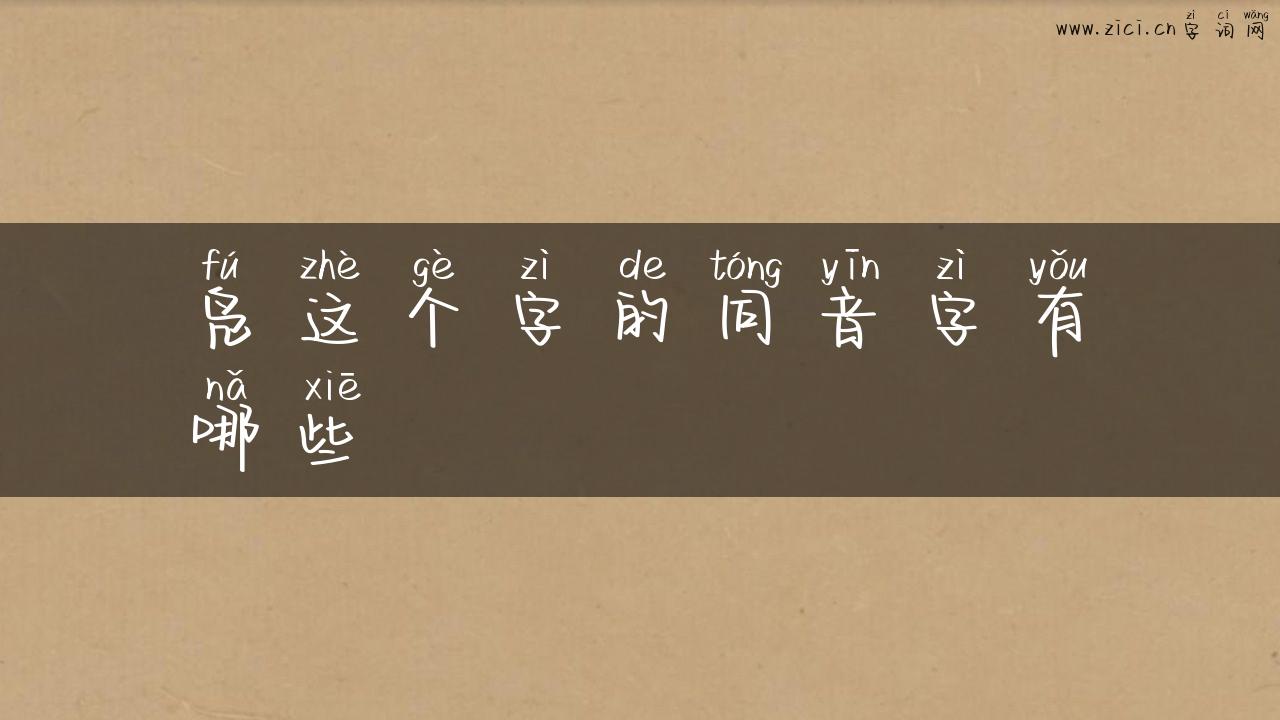 zì cí wǎng
www.zici.cn 字词网
fú zhè gè zì de tóng yīn zì yǒu
凫这个字的同音字有
nǎ xiē
哪些